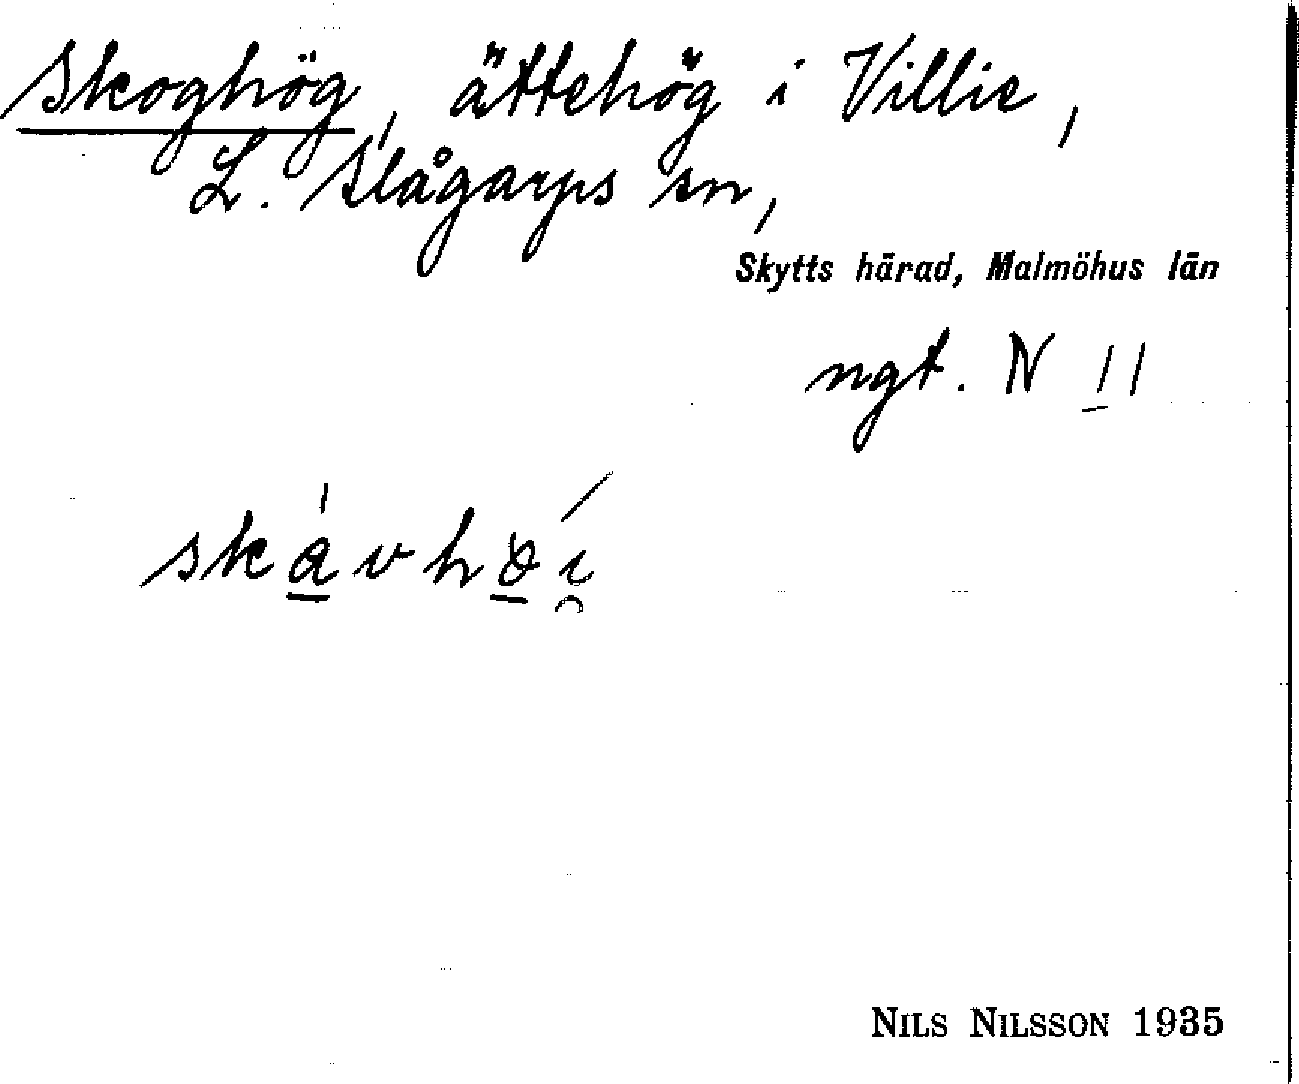 Skoghög, ättehög i Villie,
L. Slågarps sn,
Skytts härad, Malmöhus län
ngt. N 11
skávhöí̯
NILS NILSSON 1935